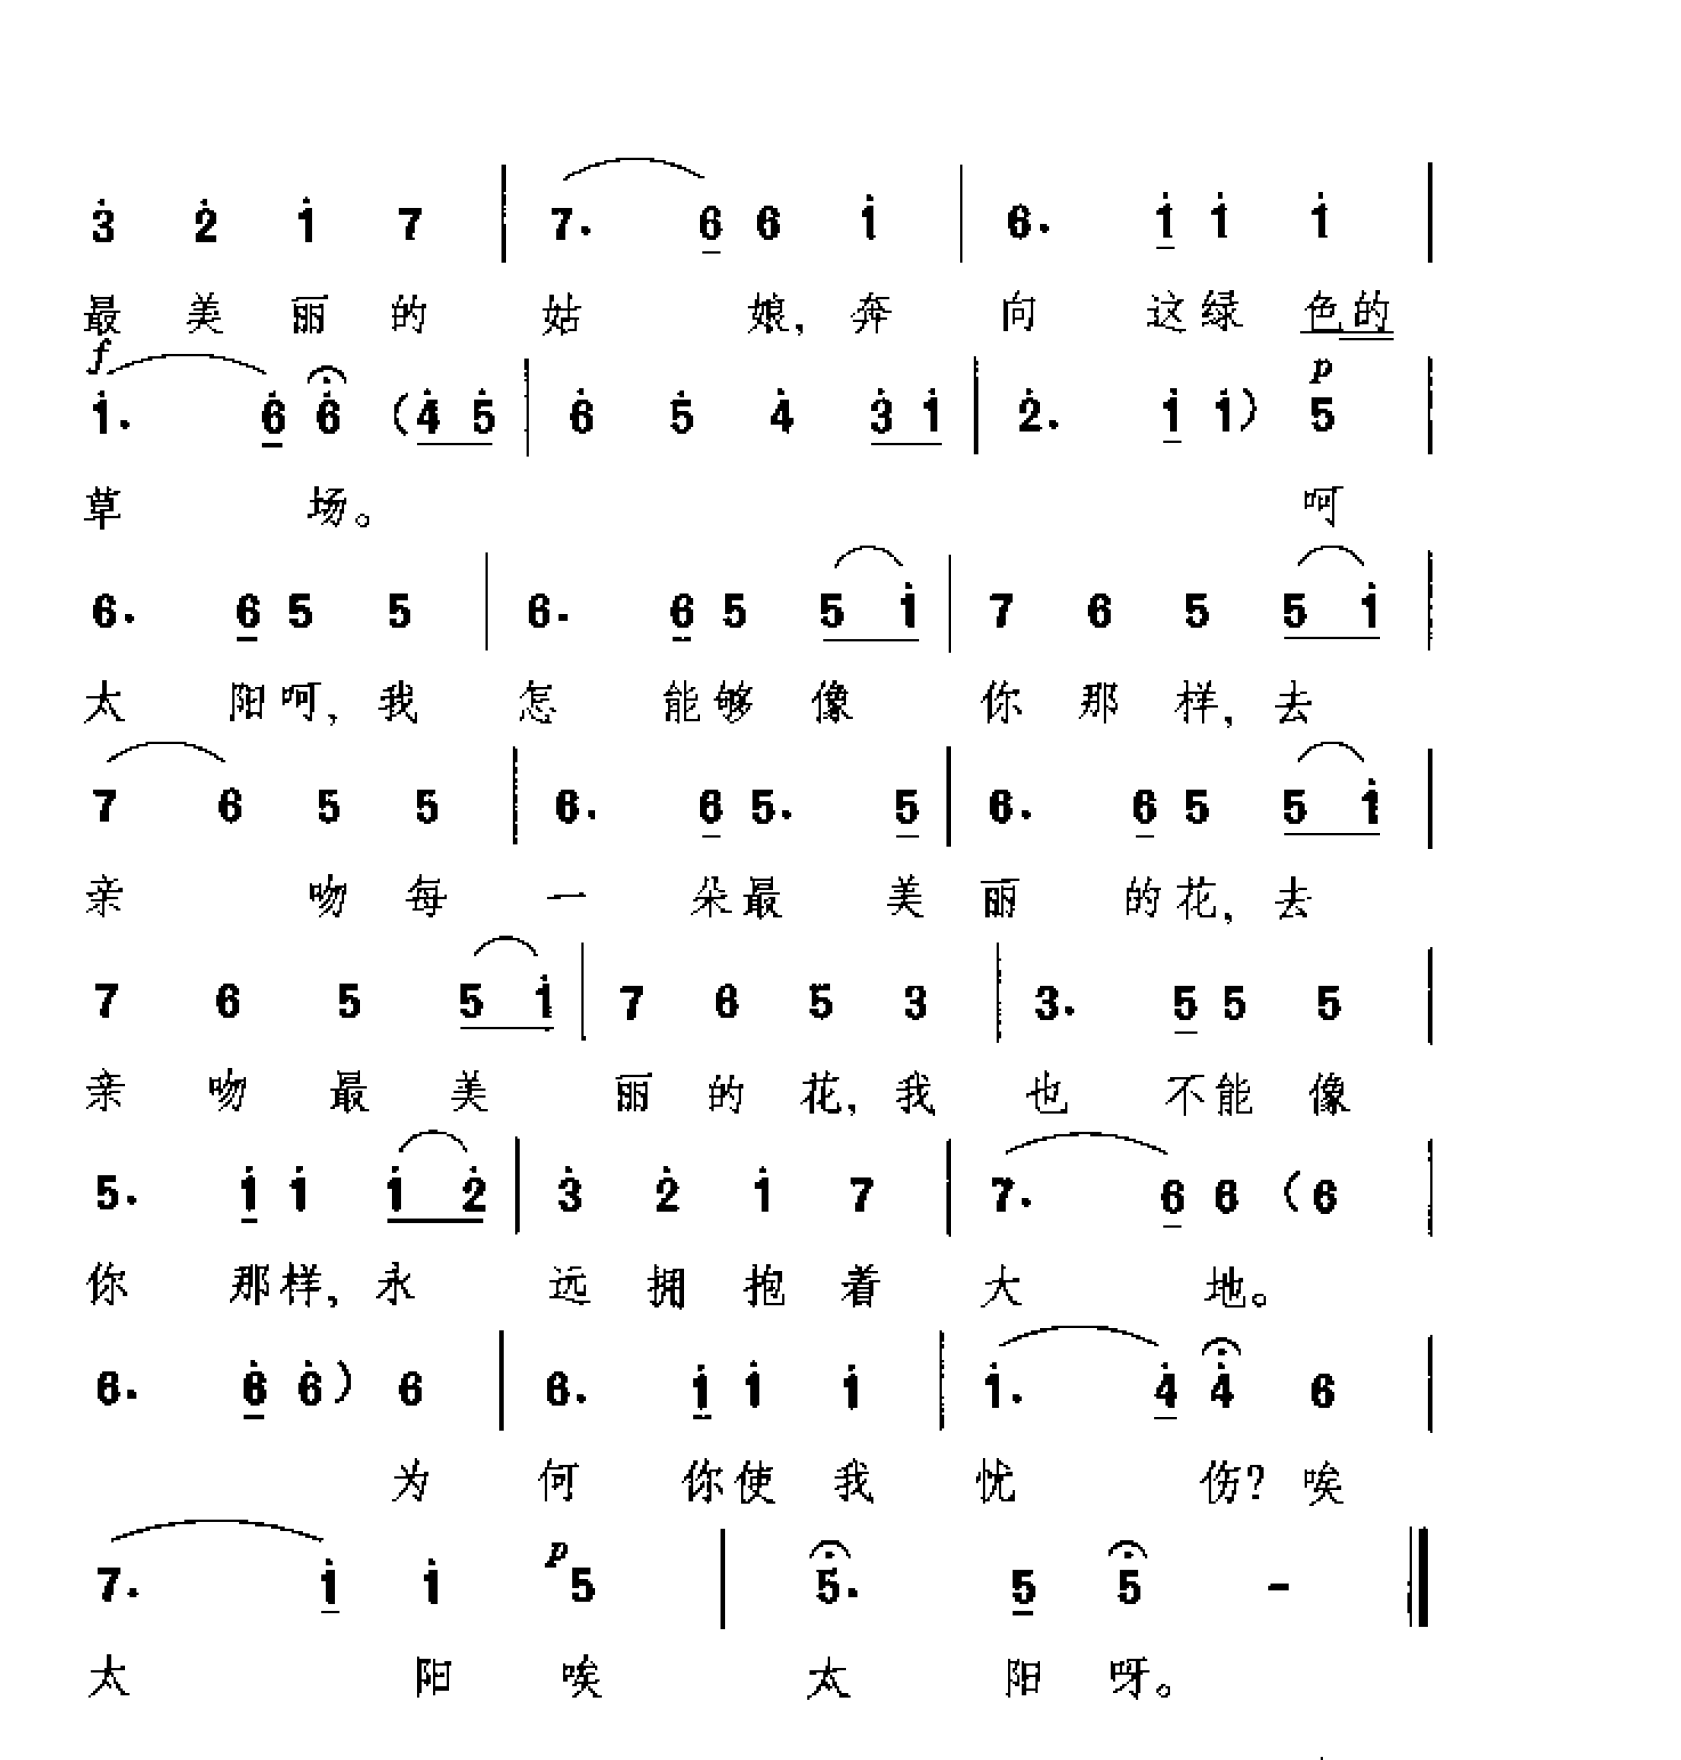 3̇ 2̇ 1̇ 7 | 7. 6 6 1̇ | 6. 1̇ 1̇ 1̇ |
最 美 丽 的 姑 娘, 奔 向 这 绿 色的
f p
1̇. 6̇ 6̇ (4̇ 5̇ | 6̇ 5̇ 4̇ 3̇ 1̇ | 2̇. 1̇ 1̇) 5 |
草 场。 呵
6. 6 5 5 | 6. 6 5 5 1̇ | 7 6 5 5 1̇ |
太 阳 呵, 我 怎 能 够 像 你 那 样, 去
7 6 5 5 | 6. 6 5. 5 | 6. 6 5 5 1̇ |
亲 吻 每 一 朵 最 美 丽 的 花, 去
7 6 5 5 1̇ | 7 6 5 3 | 3. 5 5 5 |
亲 吻 最 美 丽 的 花, 我 也 不 能 像
5. 1̇ 1̇ 1̇ 2̇ | 3̇ 2̇ 1̇ 7 | 7. 6 6 (6 |
你 那 样, 永 远 拥 抱 着 大 地。
6. 6̇ 6̇) 6 | 6. 1̇ 1̇ 1̇ | 1̇. 4̇ 4̇ 6 |
为 何 你 使 我 忧 伤? 唉
7. 1̇ 1̇ p 5 | 5. 5 5 - ‖
太 阳 唉 太 阳 呀。